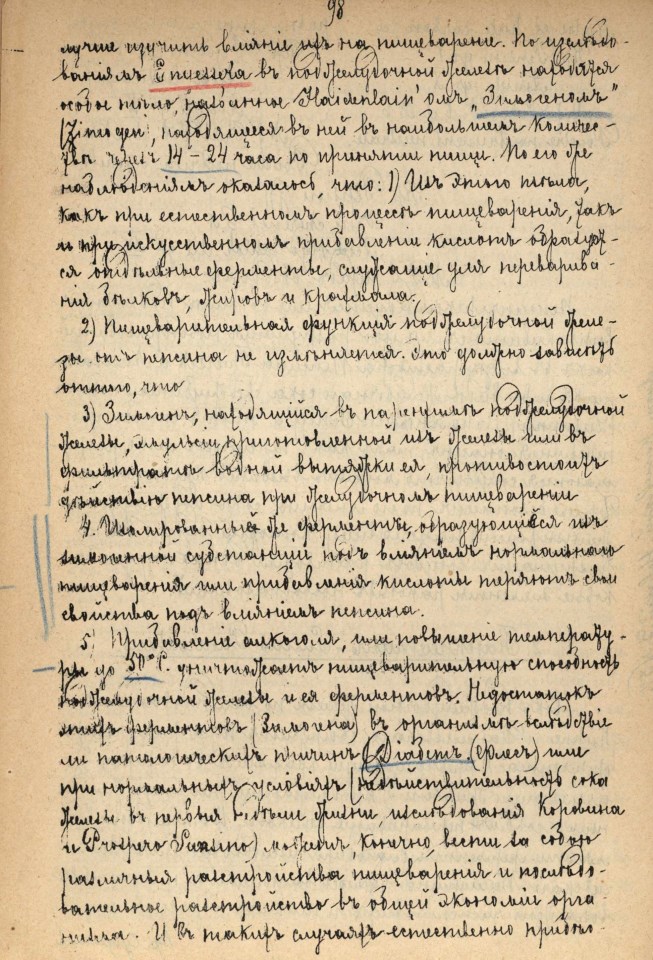 98
лучше изучить вліяніе ихъ на пищевареніе. По изслѣдо-
ваніямъ Engesser'а въ поджелудочной железѣ находится
особое тѣло, названное Haidenhain'омъ „Зимогеномъ"
(Zimogen), находящееся въ ней въ наибольшемъ количес-
твѣ черезъ 14–24 часа по принятіи пищи. По его же
наблюденіямъ оказалось, что: 1) Изъ этого тѣла,
какъ при естественномъ процессѣ пищеваренія, такъ
и при искусственномъ прибавленіи кислотъ образует-
ся отдѣльные ферменты, служащіе для перевари­ва-
нія бѣлковъ, жировъ и крахмала.
2) Пищеварительная функція поджелудочной желе-
зы отъ пепсина не измѣняется. Это должно зависѣть
оттого, что
3) Зимогенъ, находящійся въ паренхимѣ поджелудочной
железы, эмульсіи приготовленной изъ железы или въ
фильтратѣ водной вытяжки ея, противостоитъ
дѣйствію пепсина при желудочномъ пищевареніи
4. Изолированный же ферментъ, образующійся изъ
зимогенной субстанціи подъ вліяніемъ нормальнаго
пищеваренія или прибавленія кислоты теряютъ свои
свойства подъ вліяніемъ пепсина.
5) Прибавленіе алкоголя, или повышеніе температу-
ры до 50° C. уничтожаетъ пищеварительную способность
поджелудочной железы и ея ферментовъ. Недостатокъ
этихъ ферментовъ (Зимогена) въ организмѣ вслѣдствіе
ли патологическихъ причинъ (Діабетъ. (Флесъ) или
при нормальныхъ условіяхъ (недѣйствительность сока
железы въ первыя недѣли жизни, изслѣдованія Коровина
и Prospero Sonsino) можетъ, конечно, вести за собою
различныя разстройства пищеваренія и послѣдо-
вательное разстройство въ общей экономіи орга-
низма. И въ такихъ случаяхъ естественно прибѣг-